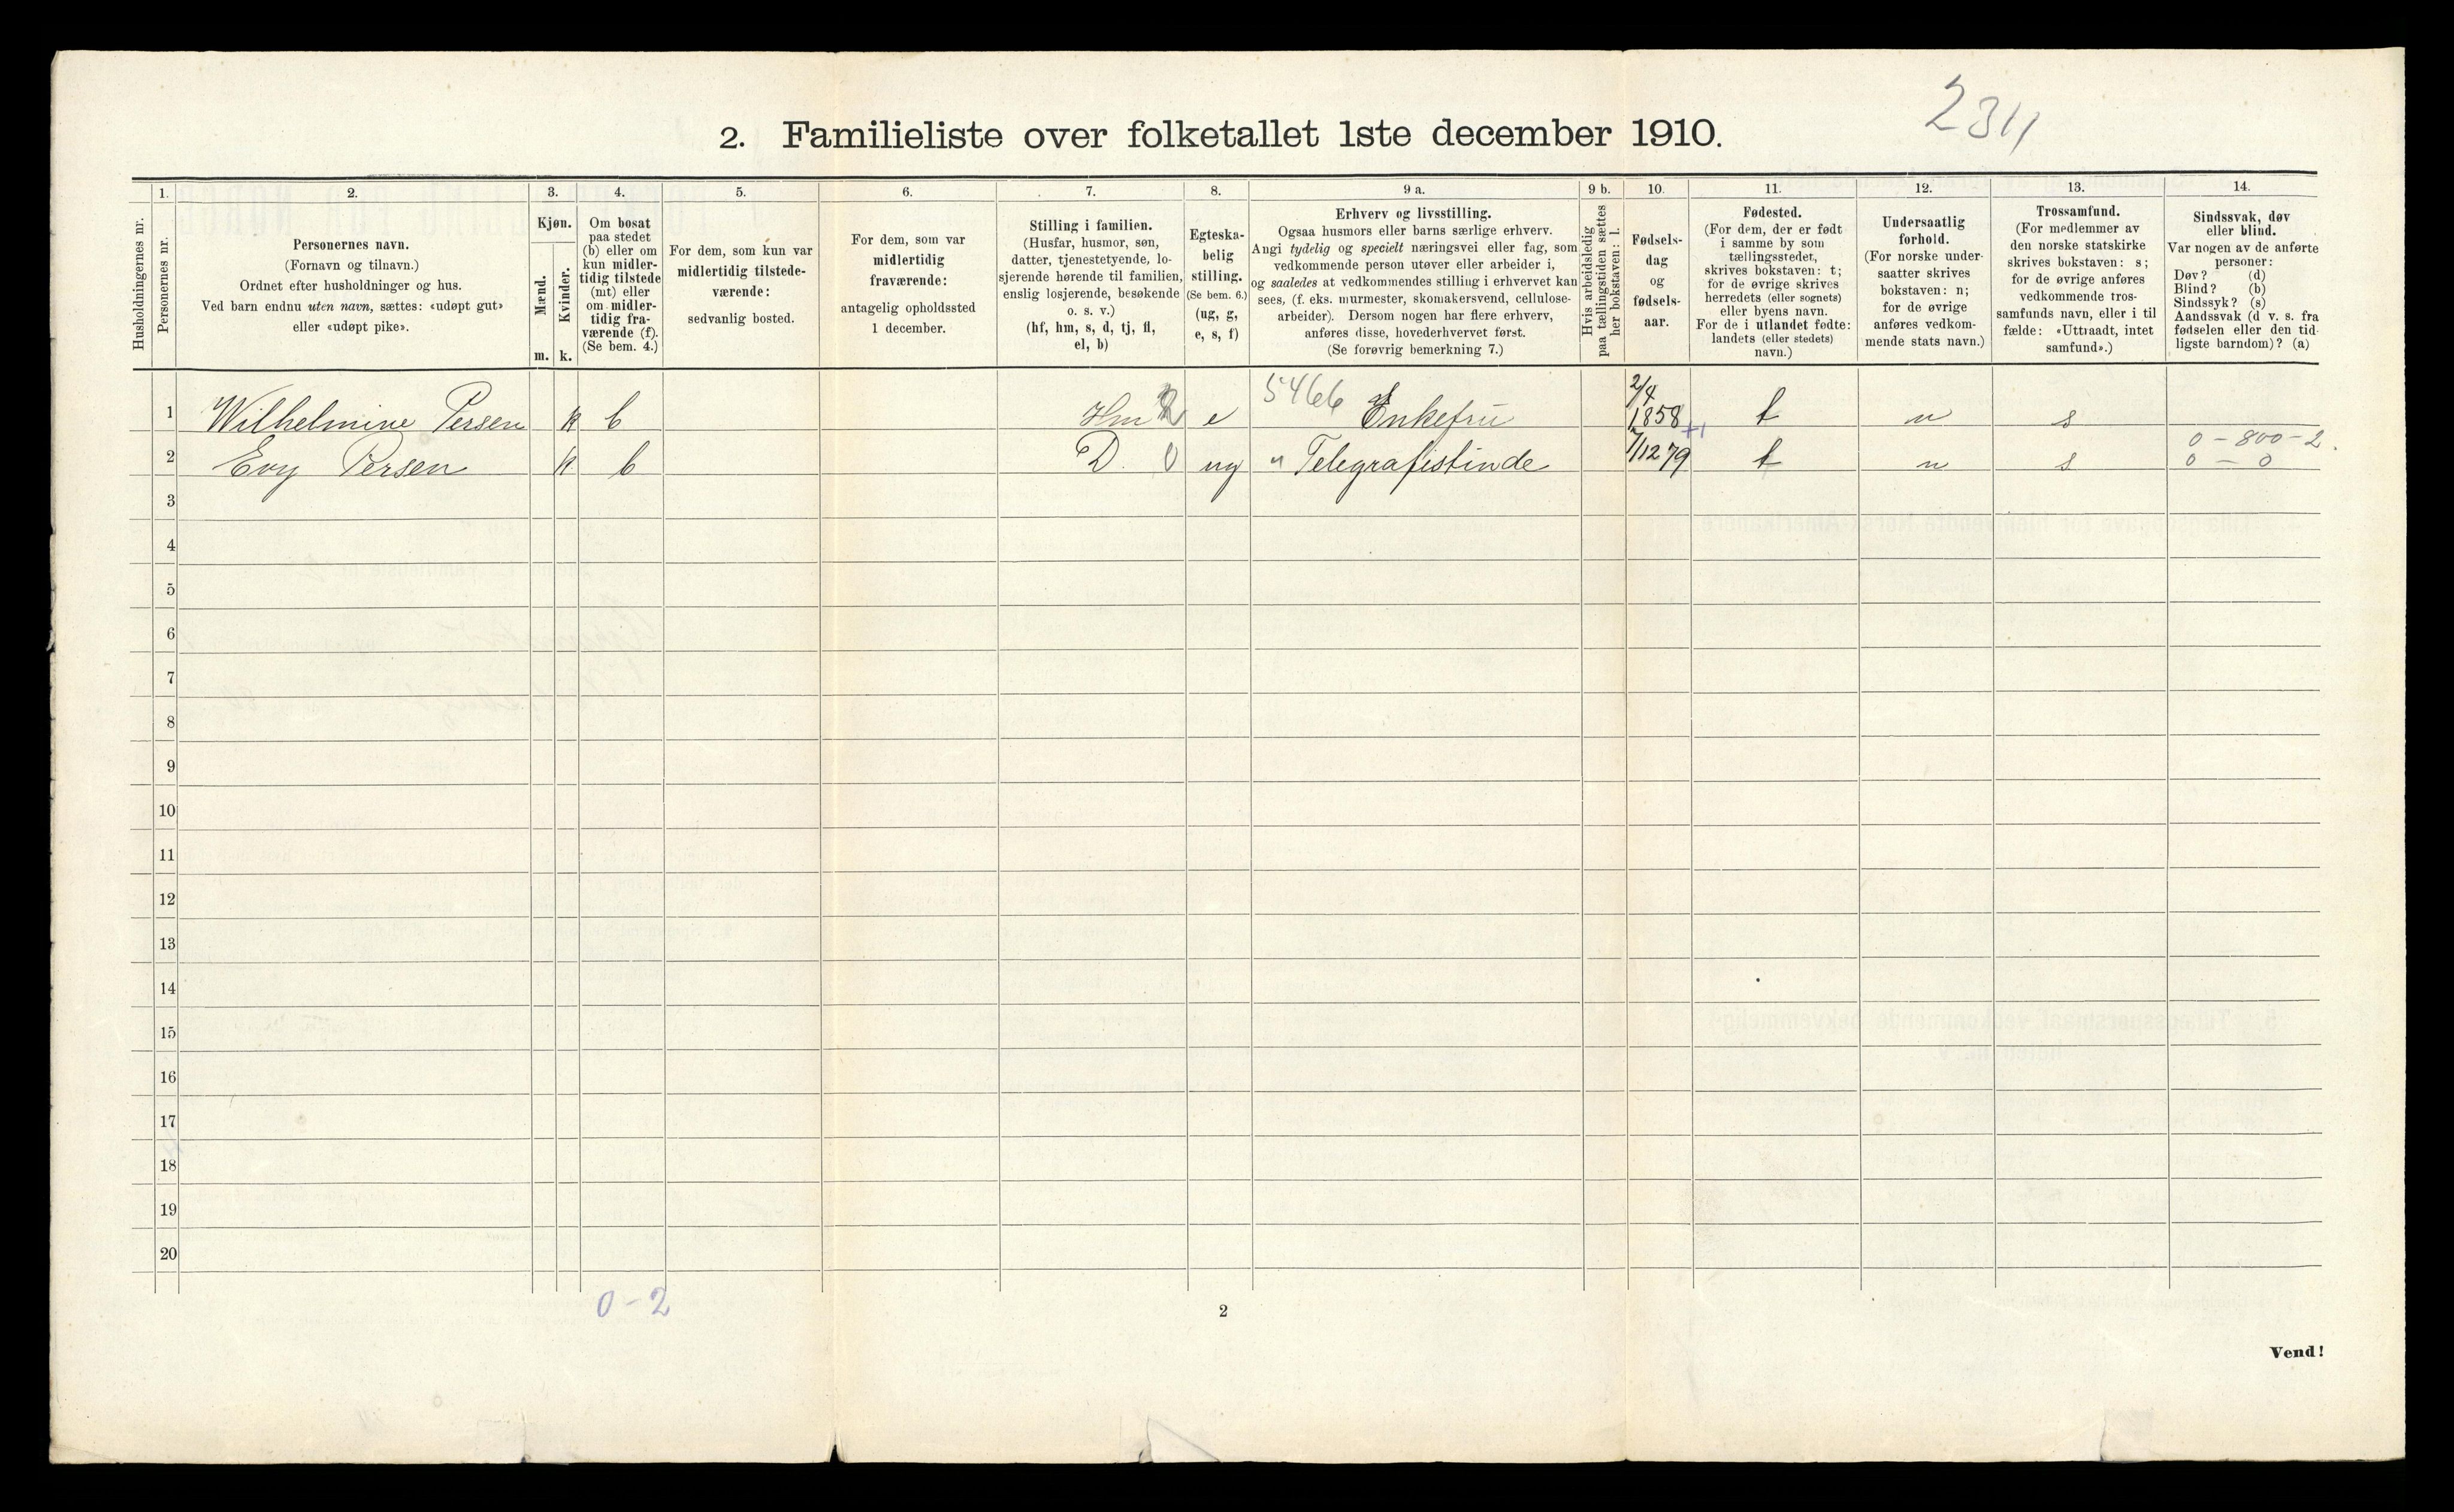 2311
2. Familieliste over folketallet 1ste december 1910.
Husholdningernes nr.
1.
Personernes nr.
2.
Personernes navn.
(Fornavn og tilnavn.)
Ordnet efter husholdninger og hus.
Ved barn endnu uten navn, sættes: «udøpt gut»
eller «udøpt pike».
3.
Kjøn.
Mænd.
Kvinder.
m. k.
4.
Om bosat
paa stedet
(b) eller om
kun midler-
tidig tilstede
(mt) eller
om midler-
tidig fra-
værende (f).
(Se bem. 4.)
5.
For dem, som kun var
midlertidig tilstede-
værende:
sedvanlig bosted.
6.
For dem, som var
midlertidig
fraværende:
antagelig opholdssted
1 december.
7.
Stilling i familien.
(Husfar, husmor, søn,
datter, tjenestetyende, lo-
sjerende hørende til familien,
enslig losjerende, besøkende
o. s. v.)
(hf, hm, s, d, tj, fl,
el, b)
8.
Egteska-
belig
stilling.
(Se bem. 6.)
(ug, g,
e, s, f)
9 a.
Erhverv og livsstilling.
Ogsaa husmors eller barns særlige erhverv.
Angi tydelig og specielt næringsvei eller fag, som
vedkommende person utøver eller arbeider i,
og saaledes at vedkommendes stilling i erhvervet kan
sees, (f. eks. murmester, skomakersvend, cellulose-
arbeider). Dersom nogen har flere erhverv,
anføres disse, hovederhvervet først.
(Se forøvrig bemerkning 7.)
9 b.
Hvis arbeidsledig
paa tællingstiden sættes
her bokstaven: l.
10.
Fødsels-
dag
og
fødsels-
aar.
11.
Fødested.
(For dem, der er født
i samme by som
tællingsstedet,
skrives bokstaven: t;
for de øvrige skrives
herredets (eller sognets)
eller byens navn.
For de i utlandet fødte:
landets (eller stedets)
navn.)
12.
Undersaatlig
forhold.
(For norske under-
saatter skrives
bokstaven: n;
for de øvrige
anføres vedkom-
mende stats navn.)
13.
Trossamfund.
(For medlemmer av
den norske statskirke
skrives bokstaven: s;
for de øvrige anføres
vedkommende tros-
samfunds navn, eller i til
fælde: «Uttraadt, intet
samfund».)
14.
Sindssvak, døv
eller blind.
Var nogen av de anførte
personer:
Døv? (d)
Blind? (b)
Sindssyk? (s)
Aandssvak (d v. s. fra
fødselen eller den tid-
ligste barndom)? (a)
1 Wilhelmine Persen k b Hm e 5466 Enkefru 2/4 1858 t n s
+1 0 - 800 - 2
2 Evy Persen k b D. 0 ug " Telegrafistinde 7/12 79 t n s 0 - 0
3
4
5
6
7
8
9
10
11
12
13
14
15
16
17
18
19
20
0 - 2
2
Vend!